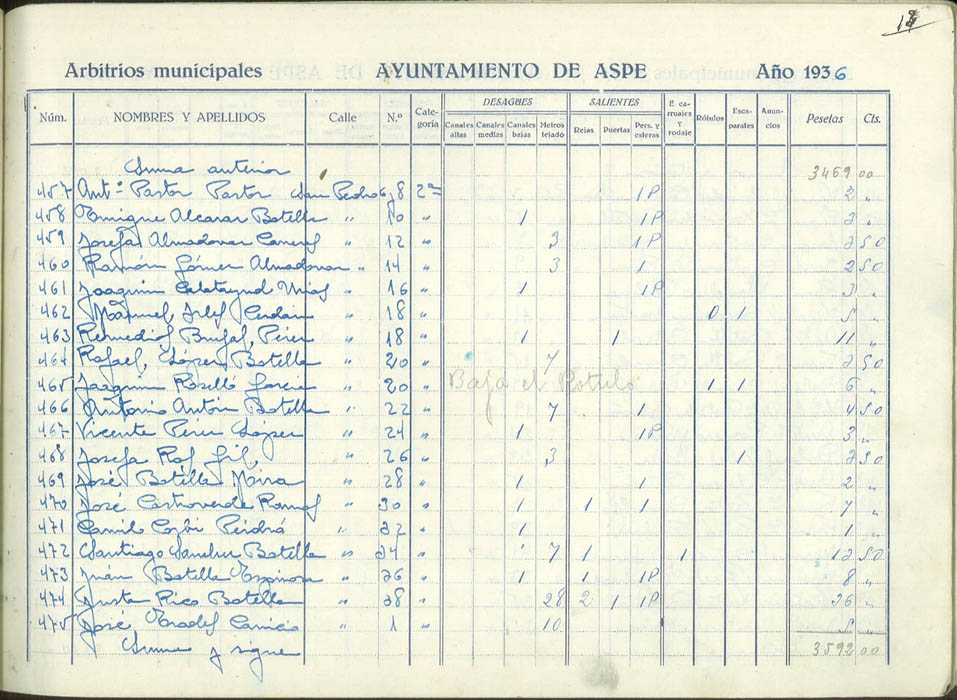 18
Arbitrios municipales AYUNTAMIENTO DE ASPE Año 1936
Núm. NOMBRES Y APELLIDOS Calle N.º Cate-goría DESAGUES Canales altas Canales medias Canales bajas Metros tejado SALIENTES Rejas Puertas Pers. y esteras E. ca-rruajes y rodaje Rótulos Esca-parates Anun-cios Pesetas Cts.
Suma anterior 3469 00
457 Ant.º Pastor Pastor San Pedro 6 y 8 2ª 1P 2 "
458 Enrique Alcaraz Botella " 10 " 1 1P 3 "
459 Josefa Almodovar " 12 " 3 1P 2 50
460 Ramón Gómez Almodovar " 14 " 3 1 2 50
461 Joaquin Calatayud " 16 " 1 1P 3 "
462 Manuel " 18 " 0 1 5 "
463 Remedios Pérez " 18 " 1 1 11 "
464 Rafael López Botella " 20 " 7 3 50
465 Joaquin Roselló Garcia " 20 " Baja el Rotulo 1 1 6 "
466 Antonio Antón Botella " 22 " 7 1 4 50
467 Vicente Pérez López " 24 " 1 1P 3 "
468 Josefa Gil " 26 " 3 1 50
469 José Botella Mira " 28 " 1 1 2 "
470 José Castroverde Ramos " 30 " 1 1 1 7 "
471 Camilo " 32 " 1 1 "
472 Santiago Sanchez Botella " 34 " 7 1 1 12 50
473 Juán Botella Espinosa " 36 " 1 1 1P 8 "
474 Justa Rico Botella " 38 " 28 2 1 1P 36 "
475 José " 1 " 10 5 "
Suma y sigue 3592 00